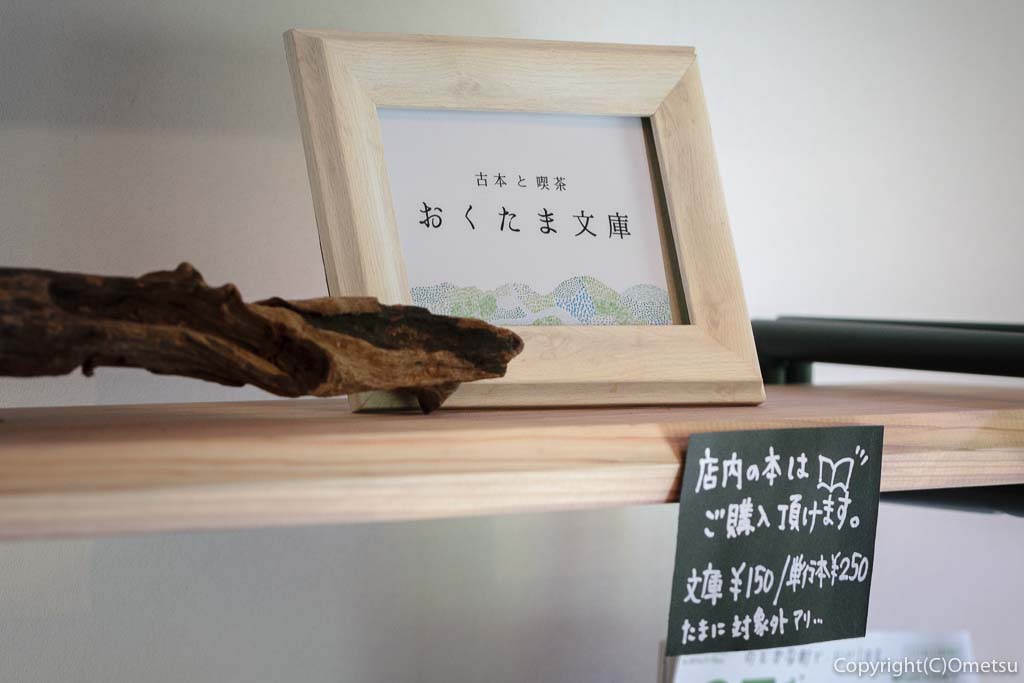 古本と喫茶
おくたま文庫
店内の本は
ご購入頂けます。
文庫¥150/単行本¥250
たまに対象外アリ…
Copyright(C)Ometsu